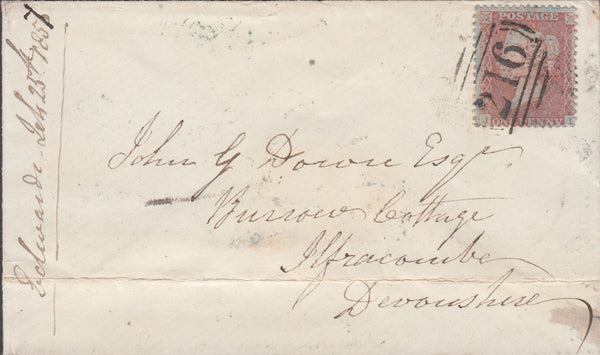 Edwards Feb 25th 1857
POSTAGE
216
ONE PENNY
John G Down Esqr
Burrow Cottage
Ilfracombe
Devonshire